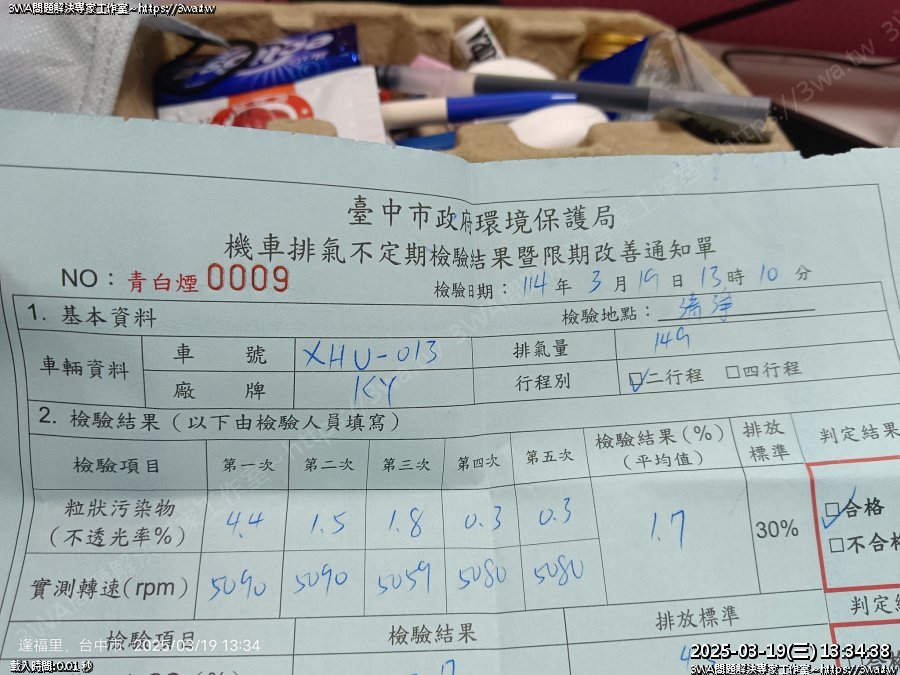 3WA問題解決專家工作室~https://3wa.tw
臺中市政府環境保護局
機車排氣不定期檢驗結果暨限期改善通知單
NO：青白煙 0009
檢驗日期：114年3月19日13時10分
1. 基本資料
檢驗地點：
車輛資料
車號 XHU-013 排氣量 149
廠牌 KY 行程別 ☑二行程 □四行程
2. 檢驗結果（以下由檢驗人員填寫）
檢驗項目 第一次 第二次 第三次 第四次 第五次 檢驗結果(%)（平均值） 排放標準 判定結果
粒狀污染物（不透光率%） 4.4 1.5 1.8 0.3 0.3 1.7 30% ☑合格
□不合格
實測轉速(rpm) 5090 5090 5059 5080 5080
檢驗項目 檢驗結果 排放標準 判定結
逢福里，台中市 2025/03/19 13:34
2025-03-19(三) 13:34:38
載入時間:0.01 秒
3WA問題解決專家工作室~https://3wa.tw